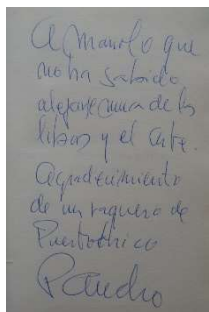 A Manolo que
no ha sabido
alejarse nunca de los
libros y el arte.
Agradecimiento
de un raquero de
Puertochico